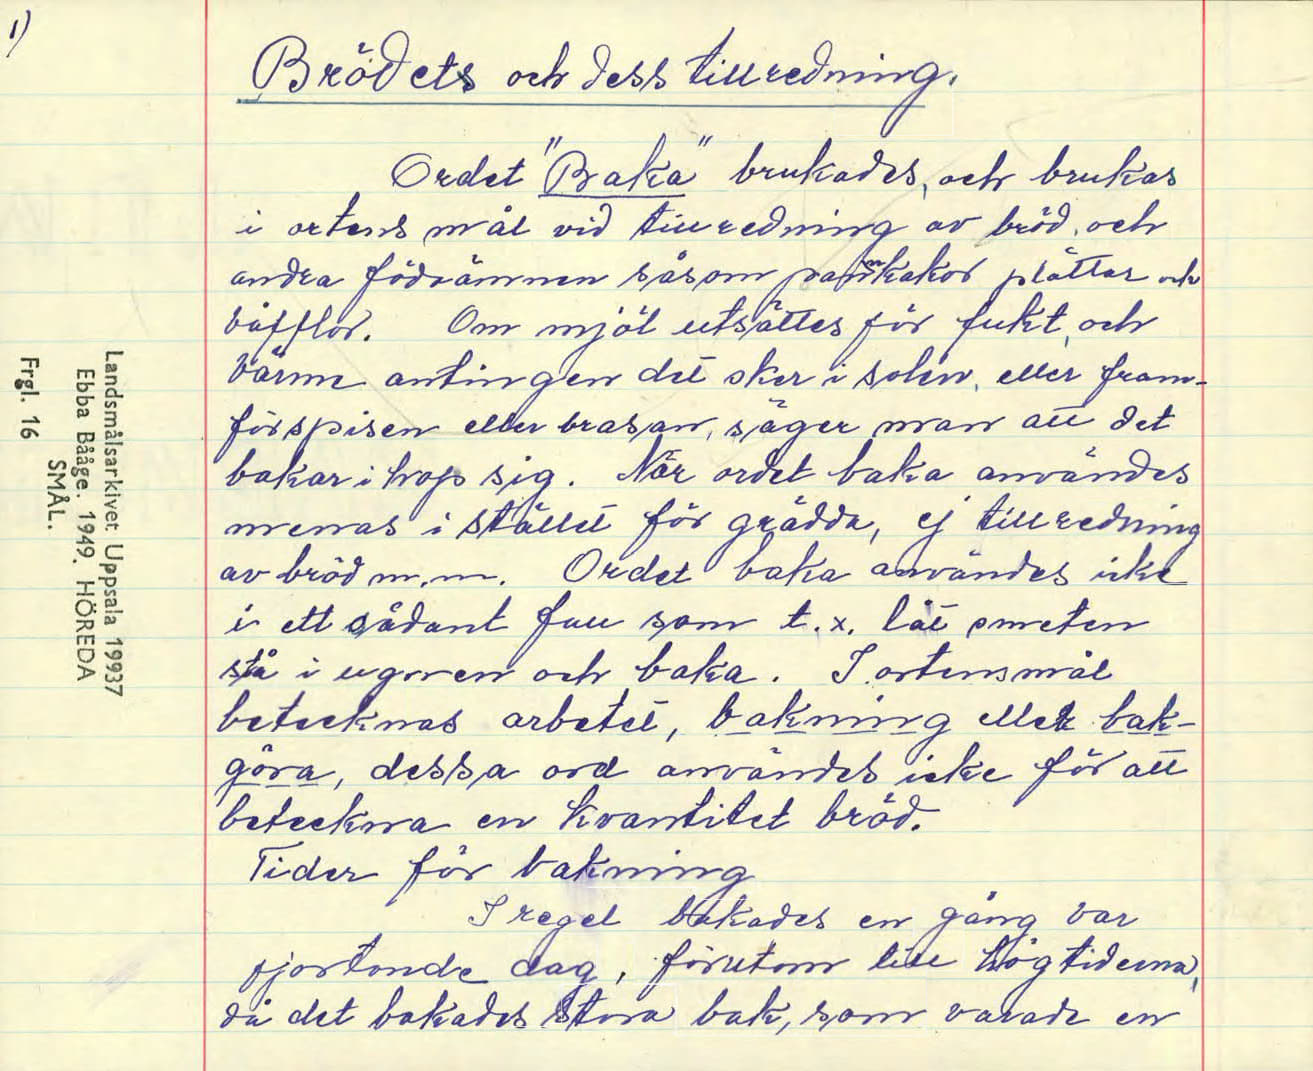 1)
Brödets och dess tillredning.
Ordet "Baka" brukades, och brukas
i ortens mål vid tillredning av bröd, och
andra födoämnen såsom pannkakor plättar och
våfflor. Om mjöl utsättes för fukt, och
värme antingen det sker i solen, eller fram-
för spisen eller brasan, säger man att det
bakar i hop sig. När ordet baka användes
menas i stället för grädda, ej tillredning
av bröd m.m. Ordet baka användes icke
i ett sådant fall som t.x. låt smeten
stå i ugnen och baka. I ortens mål
betecknas arbetet, bakning eller bak-
göra, dessa ord användes icke för att
beteckna en kvantitet bröd.
Tider för bakning
I regel bakades en gång var
fjortonde dag, förutom till högtiderna,
då det bakades stora bak, som varade en
Landsmålsarkivet Uppsala 19937
Ebba Bååge. 1949. HÖREDA
SMÅL.
Frgl. 16